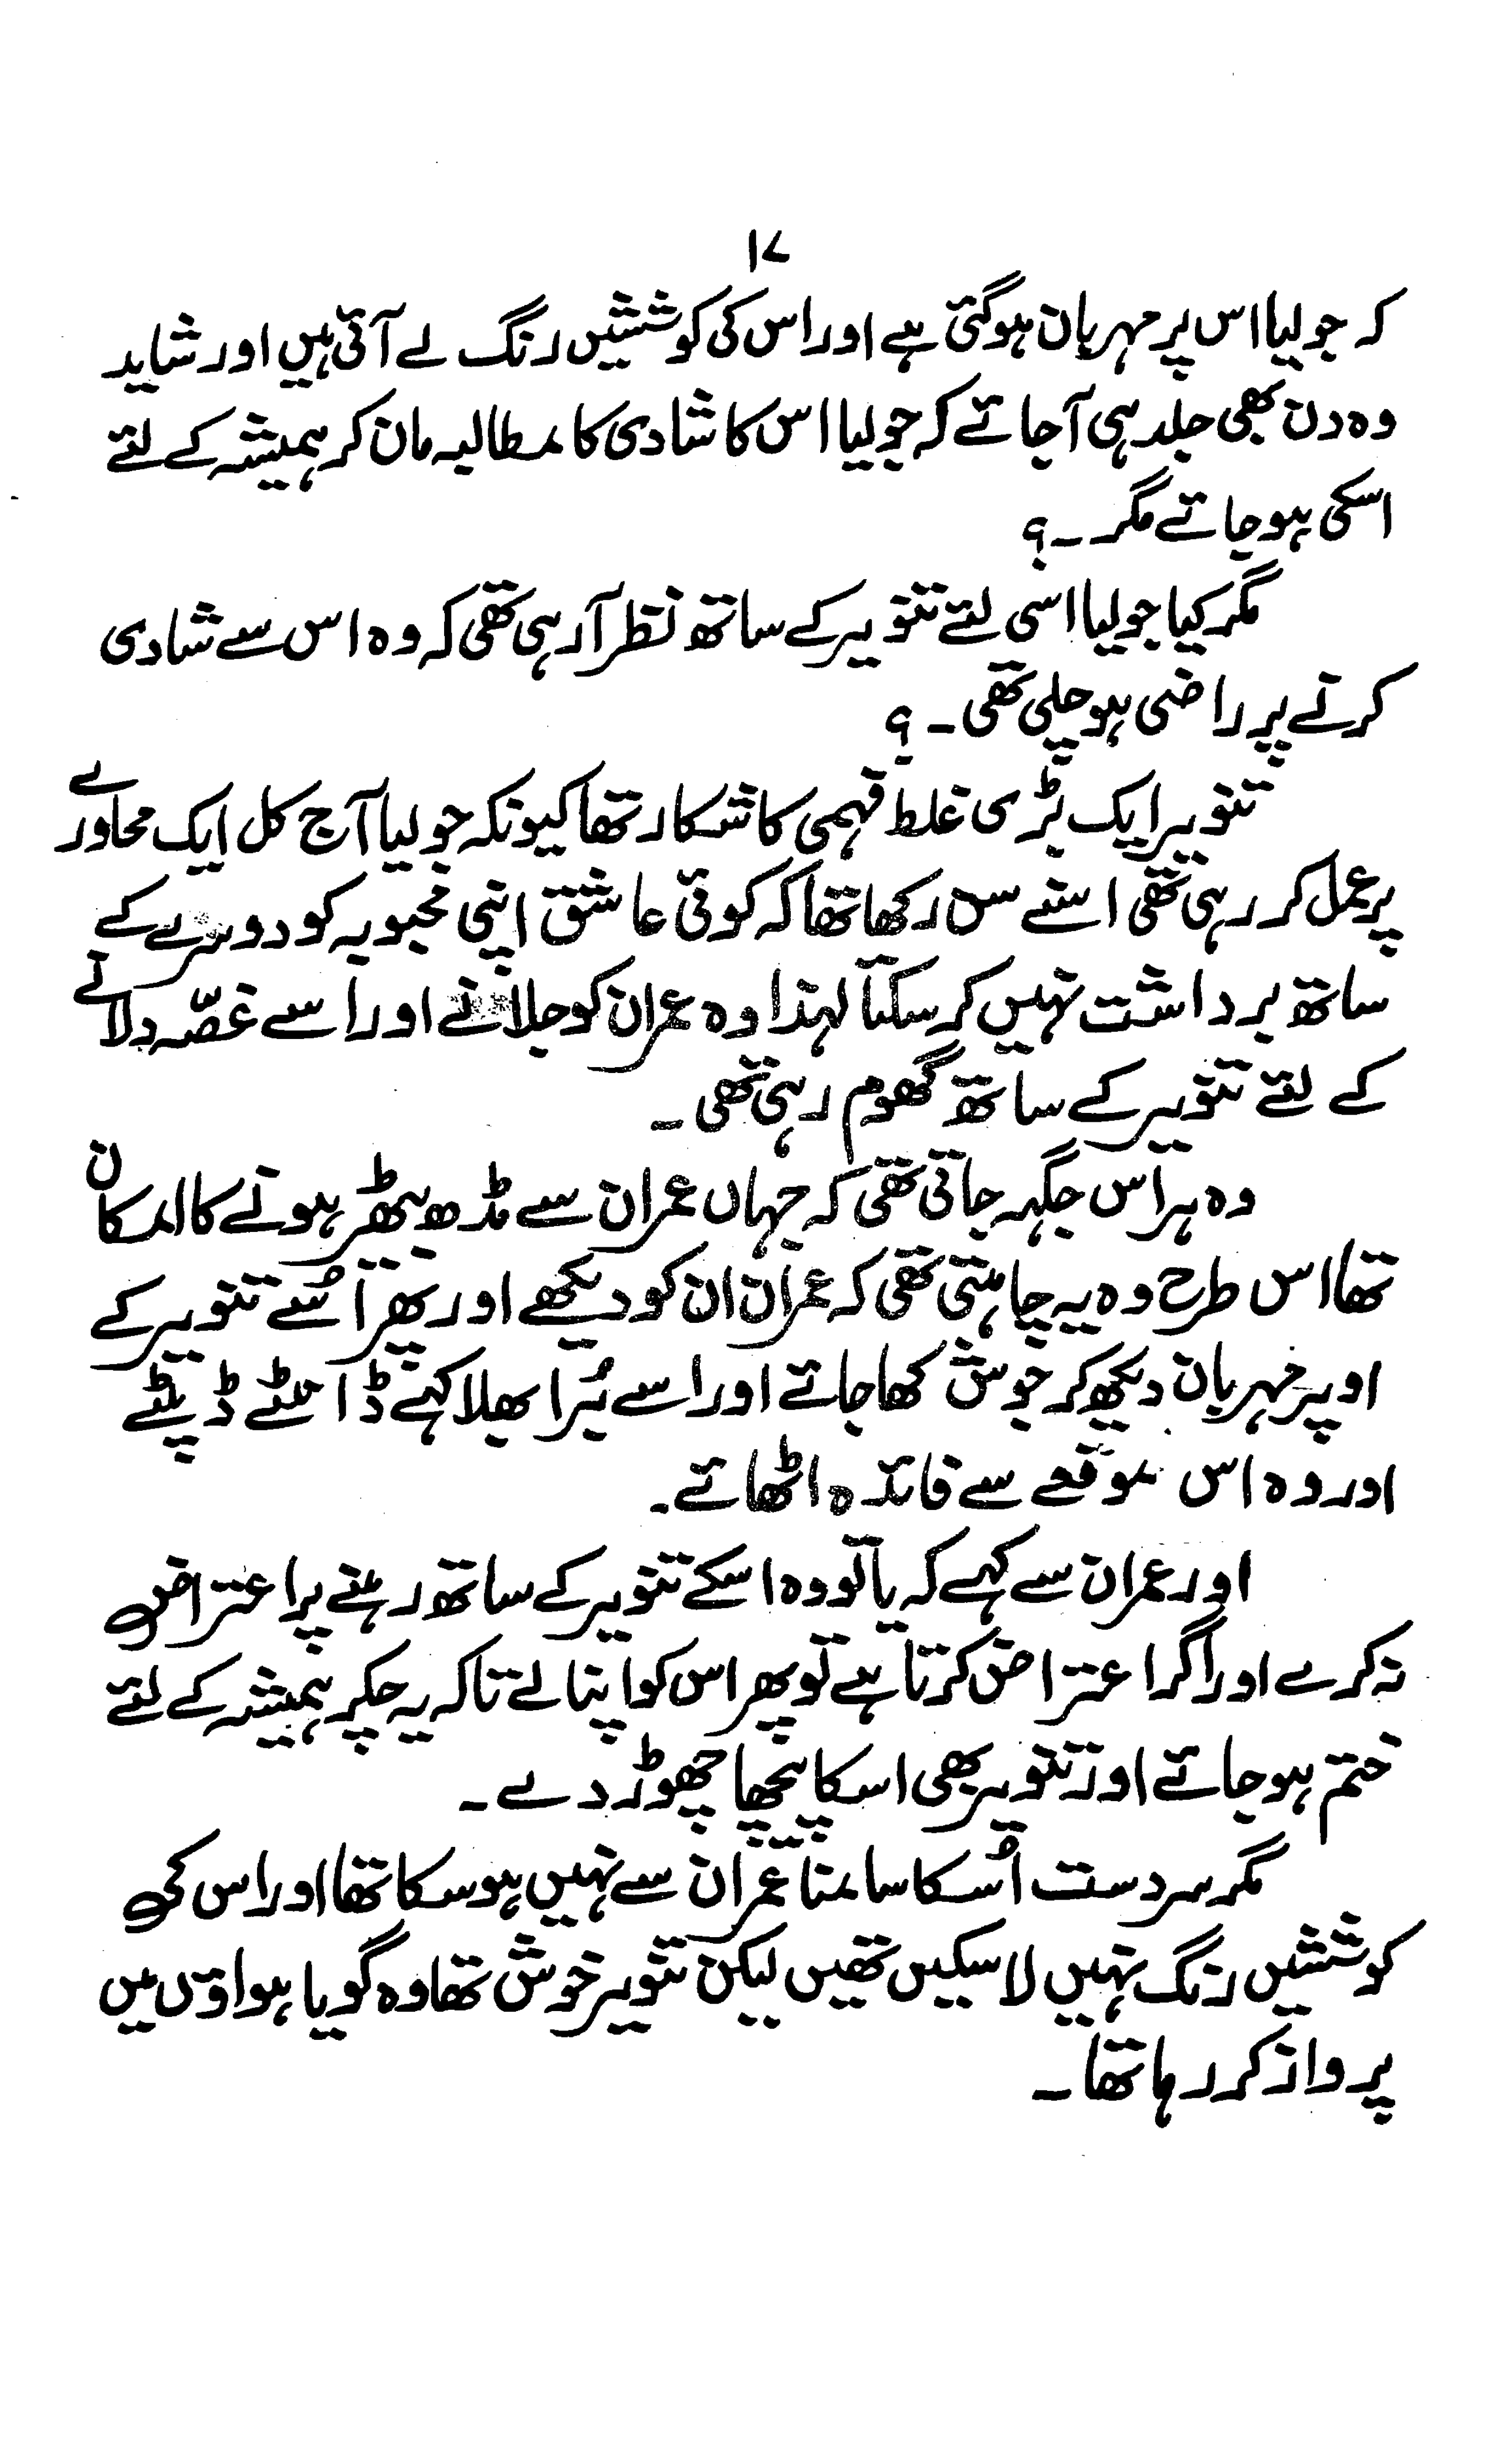 ۱۷
کہ جولیا اس پر مہربان ہوگئی ہے اور اس کی کوششیں رنگ لے آئی ہیں اور شاید
وہ دن بھی جلد ہی آجائے کہ جولیا اس کا شادی کا مطالبہ مان کر ہمیشہ کے لئے
اسکی ہو جائے مگر ۔۔؟
مگر کیا جولیا اسی لئے تنویر کے ساتھ نظر آرہی تھی کہ وہ اس سے شادی
کرنے پر راضی ہو چلی تھی ۔ ؟
تنویر ایک بڑی غلط فہمی کا شکار تھا کیونکہ جولیا آج کل ایک محاورے
پر عمل کر رہی تھی اسنے سن رکھا تھا کہ کوئی عاشق اپنی محبوبہ کو دوسرے کے
ساتھ برداشت نہیں کر سکتا لہذا وہ عمران کو جلانے اور اسے غصّہ دلانے
کے لئے تنویر کے ساتھ گھوم رہی تھی ۔
وہ ہر اس جگہہ جاتی تھی کہ جہاں عمران سے مڈھ بھیڑ ہونے کا امکان
تھا اس طرح وہ یہ چاہتی تھی کہ عمران ان کو دیکھے اور پھر اُسے تنویر کے
اوپر مہربان دیکھ کر جوش کھا جائے اور اسے بُرا بھلا کہے ڈانٹے ڈپٹے
اور وہ اس موقعے سے فائدہ اٹھائے۔
اور عمران سے کہے کہ یا تو وہ اسکے تنویر کے ساتھ رہنے پر اعتراض
نہ کرے اور اگر اعتراض کرتا ہے تو پھر اس کو اپنا لے تاکہ یہ چکر ہمیشہ کے لئے
ختم ہو جائے اور تنویر بھی اسکا پیچھا چھوڑ دے ۔
مگر سردست اُسکا سامنا عمران سے نہیں ہو سکا تھا اور اس کی
کوششیں رنگ نہیں لا سکیں تھیں لیکن تنویر خوش تھا وہ گویا ہواؤں میں
پرواز کر رہا تھا ۔